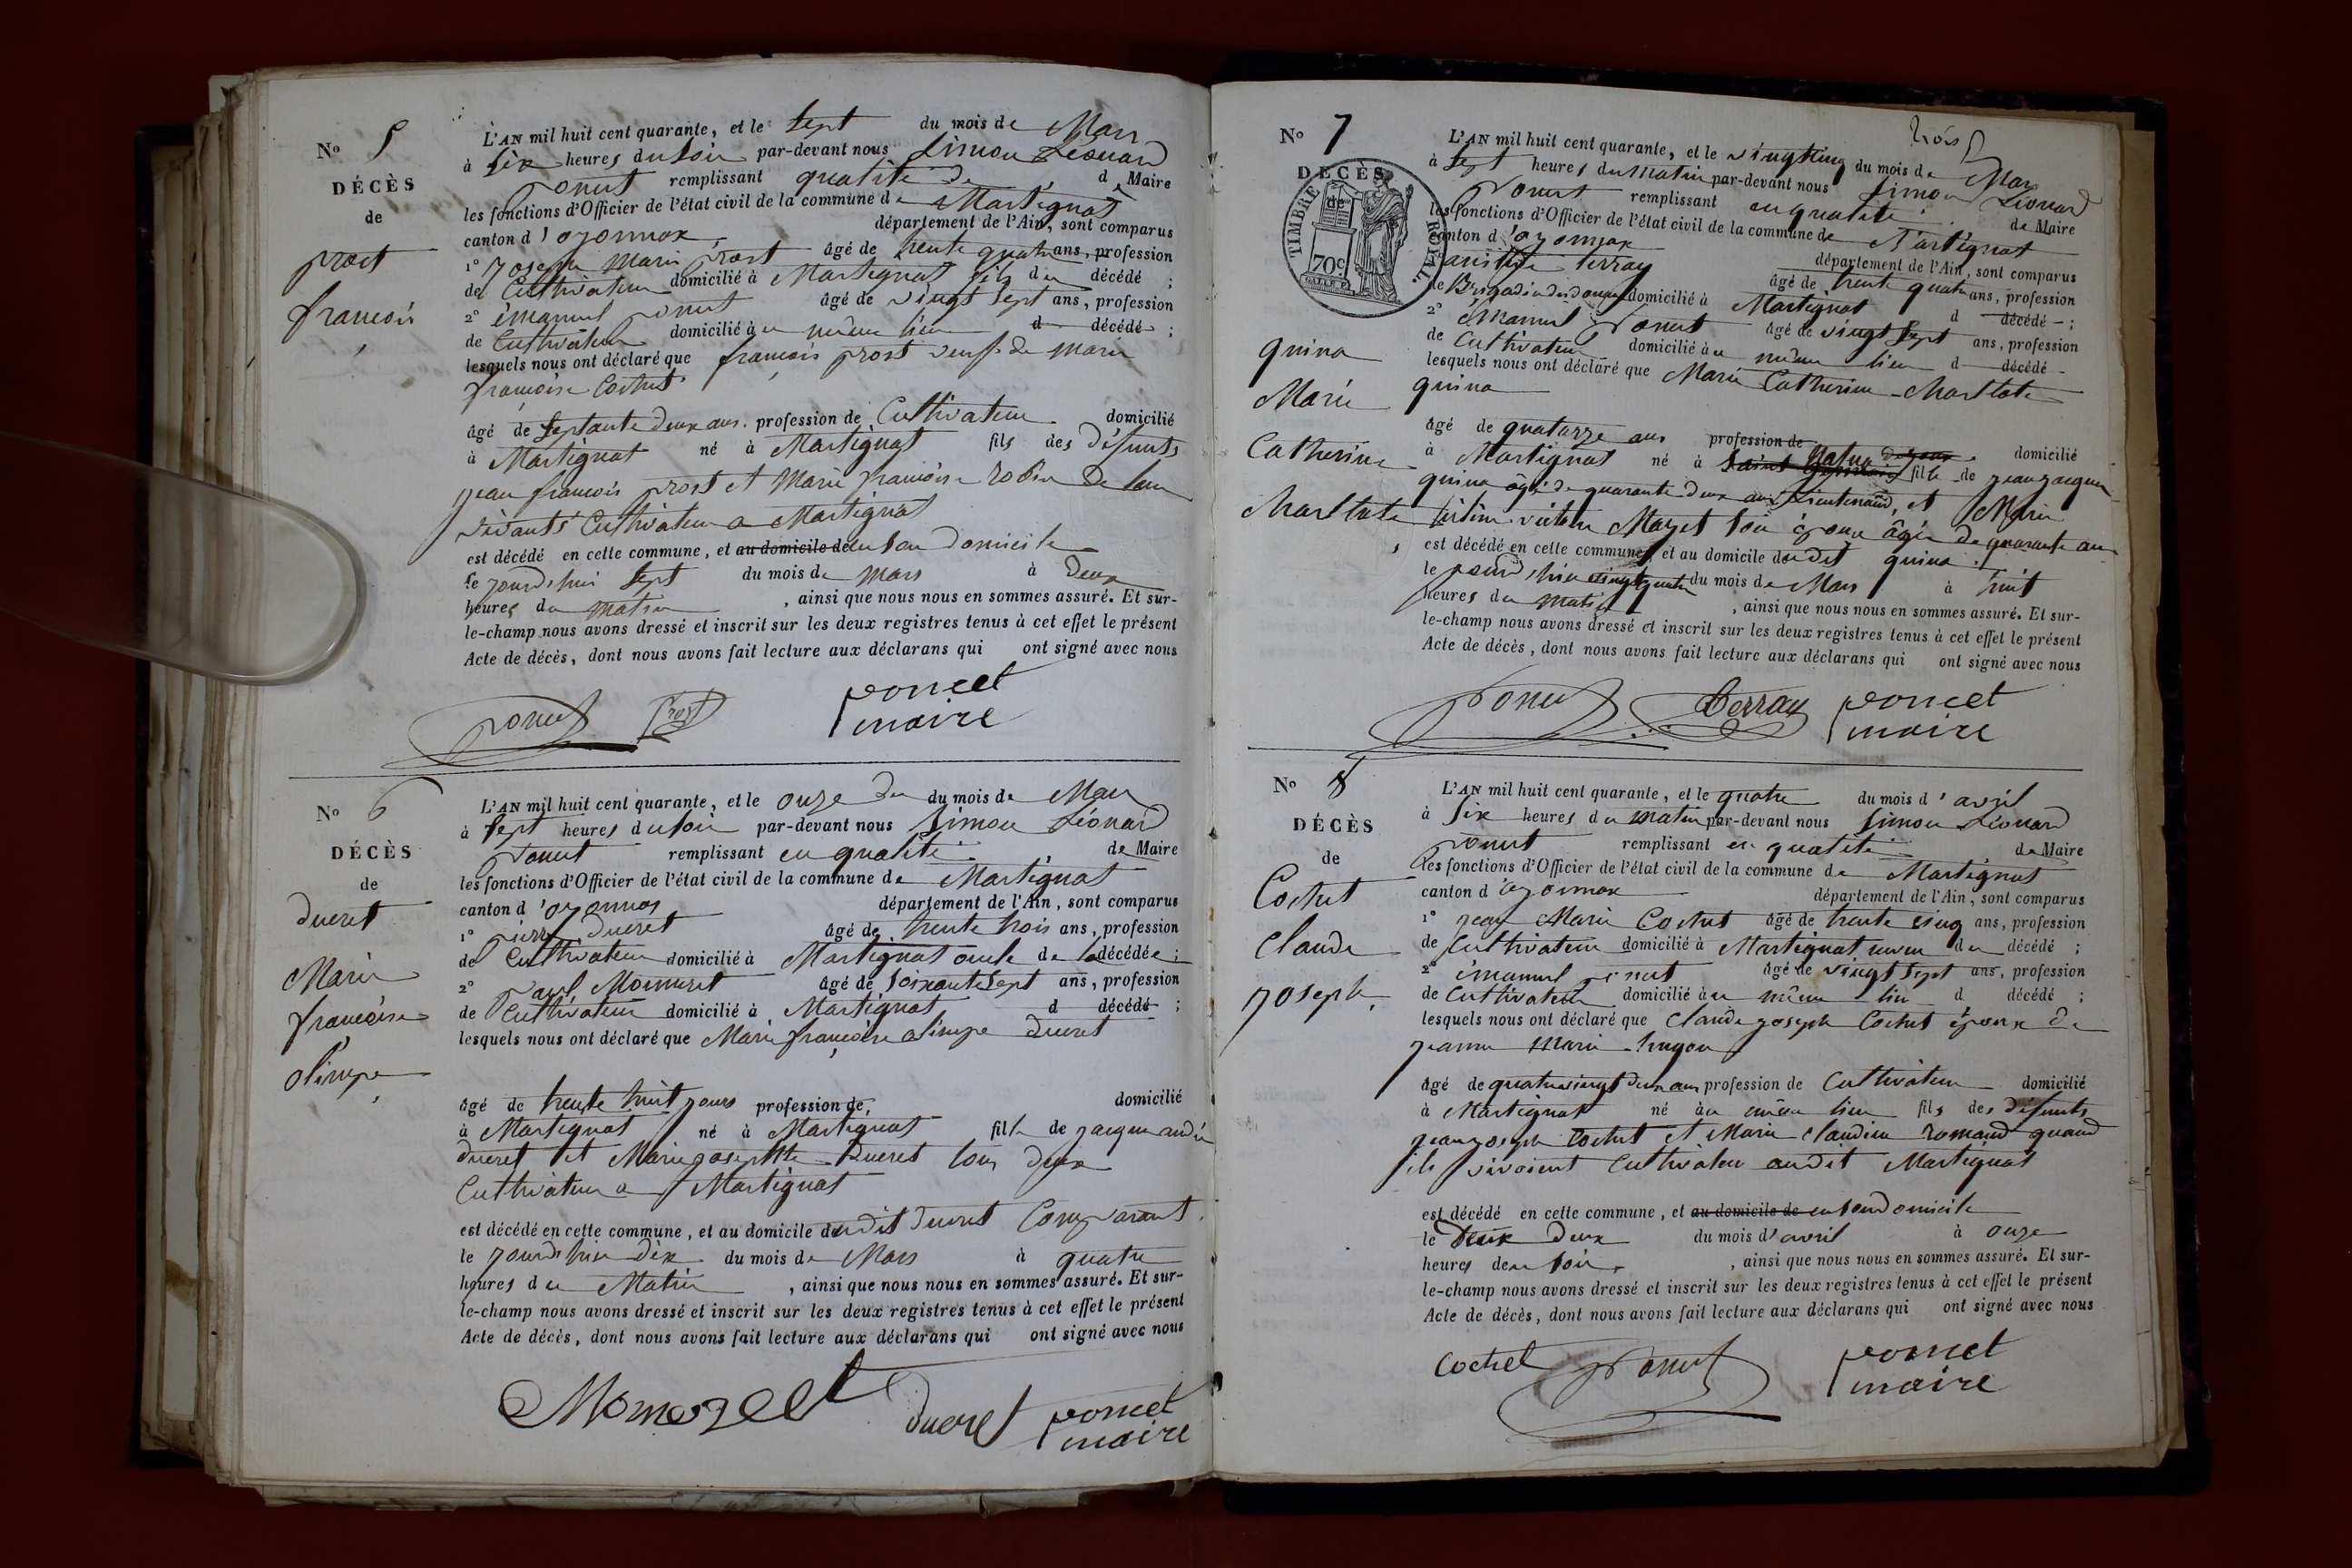 No 5
DÉCÈS
de
prost
françois
L'AN mil huit cent quarante, et le sept du mois de Mars
à six heures du soir par-devant nous Simon Léonard
poncet remplissant qualité de d Maire
les fonctions d'Officier de l'état civil de la commune de Martignat
canton d'oyonnax département de l'Ain, sont comparus
1° joseph Marie prost âgé de trente quatre ans, profession
de Cultivateur domicilié à Martignat fils du décédé ;
2° émanuel poncet âgé de vingt sept ans, profession
de Cultivateur domicilié au même lieu d décédé ;
lesquels nous ont déclaré que françois prost veuf de marie
françoise Cochet
âgé de septante deux ans profession de Cultivateur domicilié
à Martignat né à Martignat fils des défunts
jean françois prost et Marie françoise robin de leur
vivants Cultivateur a Martignat
est décédé en cette commune, et au domicile de en son Domicile
le jourd'hui sept du mois de mars à deux
heures du matin , ainsi que nous nous en sommes assuré. Et sur-
le-champ nous avons dressé et inscrit sur les deux registres tenus à cet effet le présent
Acte de décès, dont nous avons fait lecture aux déclarans qui ont signé avec nous
poncet prost poncet
maire
No 6
DÉCÈS
de
ducret
Marie
françoise
olimpe
L'AN mil huit cent quarante, et le onze du du mois de Mars
à sept heures du soir par-devant nous Simon Léonard
poncet remplissant en qualité de Maire
les fonctions d'Officier de l'état civil de la commune de Martignat
canton d'oyonnax département de l'Ain, sont comparus
1° pierre Ducret âgé de trente trois ans, profession
de Cultivateur domicilié à Martignat oncle de la décédée ;
2° paul âgé de soixante sept ans, profession
de Cultivateur domicilié à Martignat d décédé ;
lesquels nous ont déclaré que Marie françoise olimpe ducret
âgé de trente huit jours profession de, domicilié
à Martignat né à Martignat fille de jacque andré
ducret et Marie josephte Ducret tous deux
Cultivateur a Martignat
est décédé en cette commune, et au domicile dudit ducret Comparant
le jourd'hui dix du mois de Mars à quatre
heures du Matin , ainsi que nous nous en sommes assuré. Et sur-
le-champ nous avons dressé et inscrit sur les deux registres tenus à cet effet le présent
Acte de décès, dont nous avons fait lecture aux déclarans qui ont signé avec nous
ducret poncet
maire
No 7
DÉCÈS
de
TIMBRE ROYAL
70c
quina
Marie
Catherine
Charllote
L'AN mil huit cent quarante, et le vingt cinq du mois de Mars
à sept heures du matin par-devant nous Simon Léonard
poncet remplissant en qualité de Maire
les fonctions d'Officier de l'état civil de la commune de Martignat
canton d'oyonnax département de l'Ain, sont comparus
terray âgé de trente quatre ans, profession
de Brigadier des douanes domicilié à Martignat d décédé ;
2° émanuel poncet âgé de vingt sept ans, profession
de Cultivateur domicilié au même lieu d décédé
lesquels nous ont déclaré que Marie Catherine Charllote
quina
âgé de quatorze ans profession de domicilié
à Martignat né à Saint fille de jean jacques
quina âgé de quarante deux ans Lieutenand, et Marie
victoire son épouse âgée de quarante ans
est décédé en cette commune, et au domicile dudit quina
le jourd'hui vingt quatre du mois de Mars à huit
heures du matin , ainsi que nous nous en sommes assuré. Et sur-
le-champ nous avons dressé et inscrit sur les deux registres tenus à cet effet le présent
Acte de décès, dont nous avons fait lecture aux déclarans qui ont signé avec nous
poncet Terray poncet
maire
No 8
DÉCÈS
de
Cochet
Claude
joseph
L'AN mil huit cent quarante, et le quatre du mois d'avril
à six heures du matin par-devant nous Simon Léonard
poncet remplissant en qualité de Maire
les fonctions d'Officier de l'état civil de la commune de Martignat
canton d'oyonnax département de l'Ain, sont comparus
1° jean Marie Cochet âgé de trente cinq ans, profession
de Cultivateur domicilié à Martignat neveu du décédé ;
2° émanuel poncet âgé de vingt sept ans, profession
de Cultivateur domicilié au même lieu d décédé ;
lesquels nous ont déclaré que Claude joseph Cochet époux de
jeanne marie hugon
âgé de quatrevingt deux ans profession de Cultivateur domicilié
à Martignat né au même lieu fils des défunts
jean joseph Cochet et Marie Claudine romand quand
ils vivoient Cultivateur audit Martignat
est décédé en cette commune, et au domicile de en son domicile
le deux deux du mois d'avril à onze
heures de du soir , ainsi que nous nous en sommes assuré. Et sur-
le-champ nous avons dressé et inscrit sur les deux registres tenus à cet effet le présent
Acte de décès, dont nous avons fait lecture aux déclarans qui ont signé avec nous
Cochet poncet poncet
maire